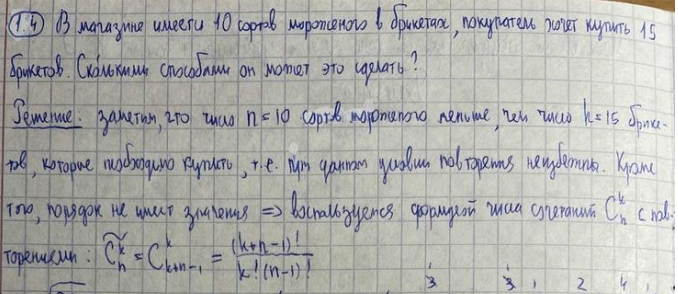 1.4 В магазине имеется 10 сортов мороженого в брикетах, покупатель хочет купить 15
брикетов. Сколькими способами он может это сделать?
Решение: заметим, что число n=10 сортов мороженого меньше, чем число k=15 брике-
тов, которые необходимо купить, т.е. при данном условии повторения неизбежны. Кроме
того, порядок не имеет значения => воспользуемся формулой числа сочетаний C_n^k с пов-
торениями: C̃_n^k = C_{k+n-1}^k = (k+n-1)! / k!(n-1)!
3 3 , 2 4